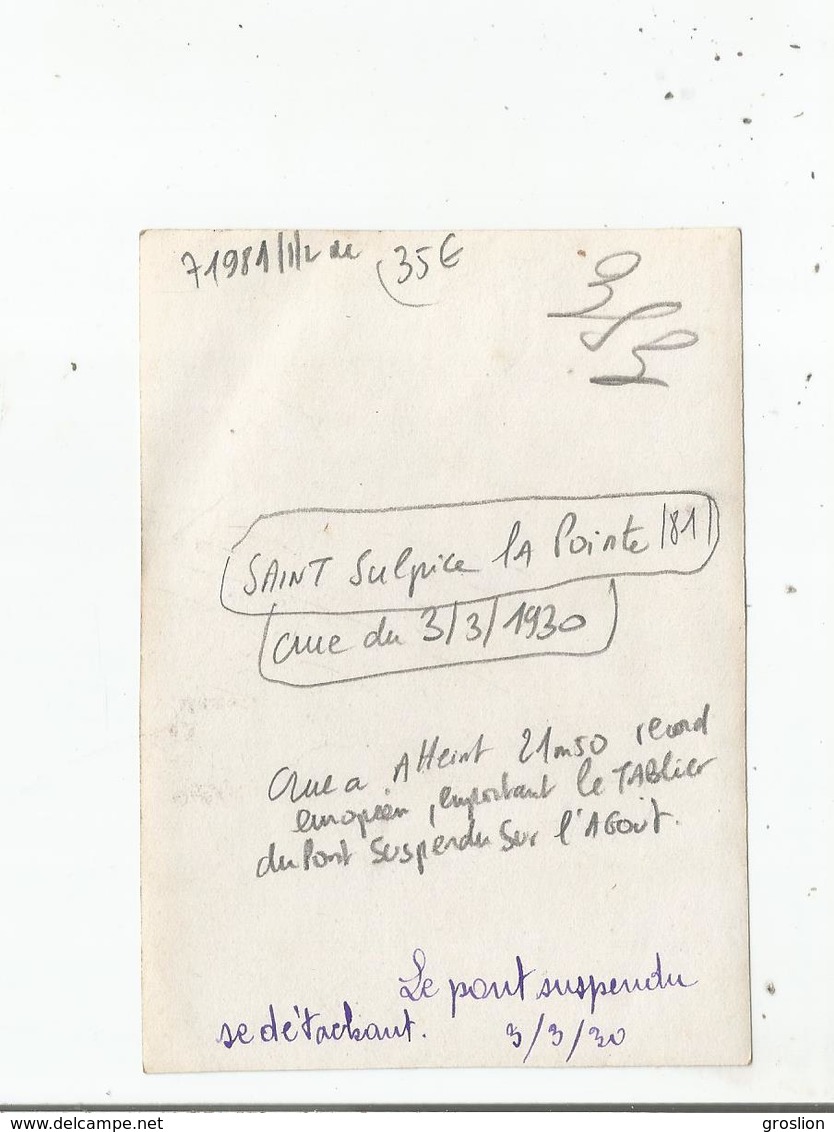 71981/1/2 de 35€
SAINT Sulpice lA Pointe (81)
crue du 3/3/1930
Crue a Atteint 21m50 record
européen, emportant le TABlier
du Pont Suspendu Sur l'AGout.
Le pont suspendu
se détachant. 3/3/30
www.delcampe.net
groslion